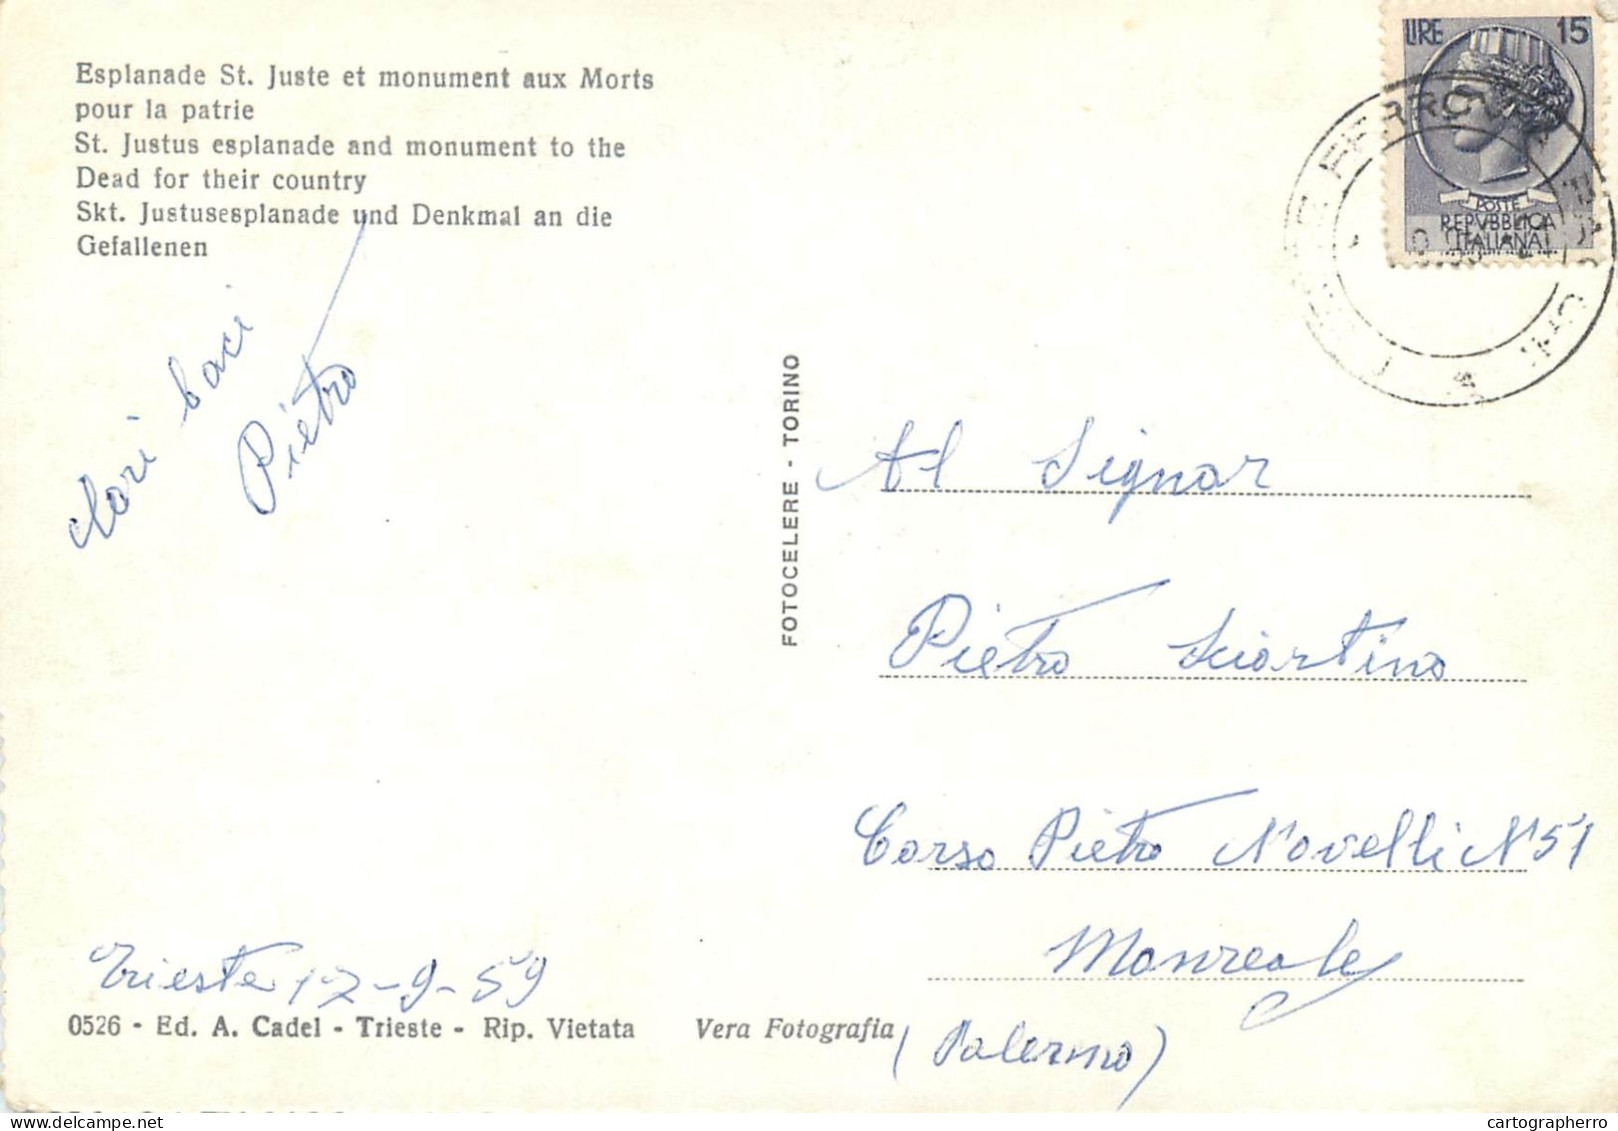 Esplanade St. Juste et monument aux Morts
pour la patrie
St. Justus esplanade and monument to the
Dead for their country
Skt. Justusesplanade und Denkmal an die
Gefallenen
LIRE 15
POSTE
REPVBBLICA
ITALIANA
FERROVIA
Cari baci
Pietro
FOTOCELERE - TORINO
Al Signor
Pietro Sciortino
Corso Pietro Novelli N° 51
Monreale
(Palermo)
Trieste 17-9-59
0526 - Ed. A. Cadel - Trieste - Rip. Vietata
Vera Fotografia
cartographerro